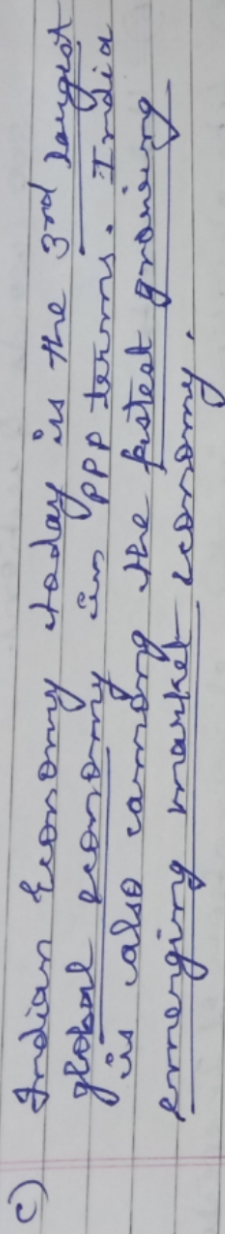 c) Indian Economy today is the 3rd largest
global economy in PPP terms. India
is also among the fastest growing
emerging market economy.